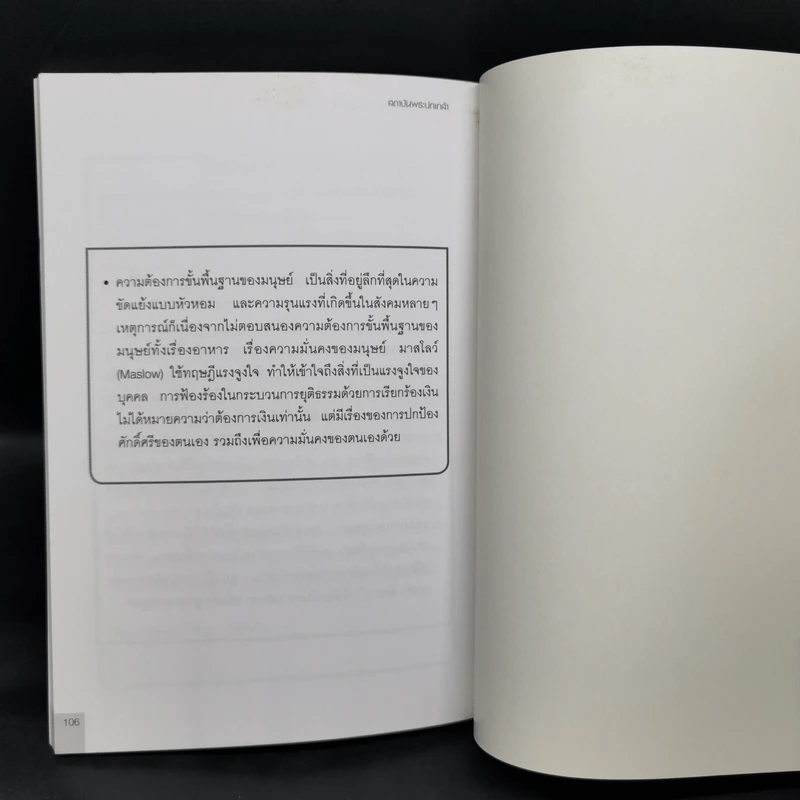 สถาบันพระปกเกล้า
• ความต้องการขั้นพื้นฐานของมนุษย์ เป็นสิ่งที่อยู่ลึกที่สุดในความ
ขัดแย้งแบบหัวหอม และความรุนแรงที่เกิดขึ้นในสังคมหลายๆ
เหตุการณ์ก็เนื่องจากไม่ตอบสนองความต้องการขั้นพื้นฐานของ
มนุษย์ทั้งเรื่องอาหาร เรื่องความมั่นคงของมนุษย์ มาสโลว์
(Maslow) ใช้ทฤษฎีแรงจูงใจ ทำให้เข้าใจถึงสิ่งที่เป็นแรงจูงใจของ
บุคคล การฟ้องร้องในกระบวนการยุติธรรมด้วยการเรียกร้องเงิน
ไม่ได้หมายความว่าต้องการเงินเท่านั้น แต่มีเรื่องของการปกป้อง
ศักดิ์ศรีของตนเอง รวมถึงเพื่อความมั่นคงของตนเองด้วย
106